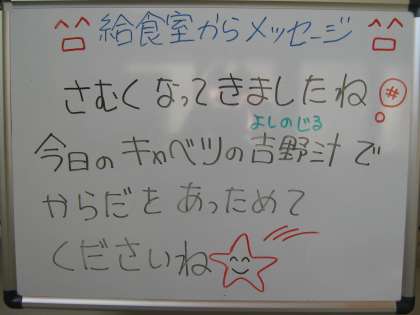 給食室からメッセージ
さむくなってきましたね
よしのじる
今日のキャベツの吉野汁で
からだをあっためて
くださいね